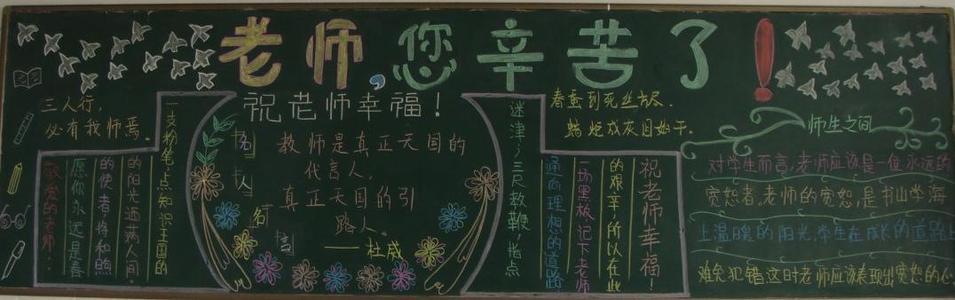 老师,您辛苦了!
三人行,
必有我师焉。
祝老师幸福!
教师是真正天国的
代言人,
真正天国的引
路人。
——杜威
春蚕到死丝方尽,
蜡炬成灰泪始干。
一支粉笔,点知识王国的
迷津;三尺教鞭,指点
通向理想的道路
一块黑板,记下老师
的艰辛,所以在此
祝老师幸福!
敬爱的老师:
愿你永远是春
的使者,将和煦
的阳光洒满人间。
师生之间
对学生而言,老师应该是一位永远的
宽恕者,老师的宽恕,是书山学海
上温暖的阳光,学生在成长的道路上
难免犯错,这时老师应该表现出宽恕的心